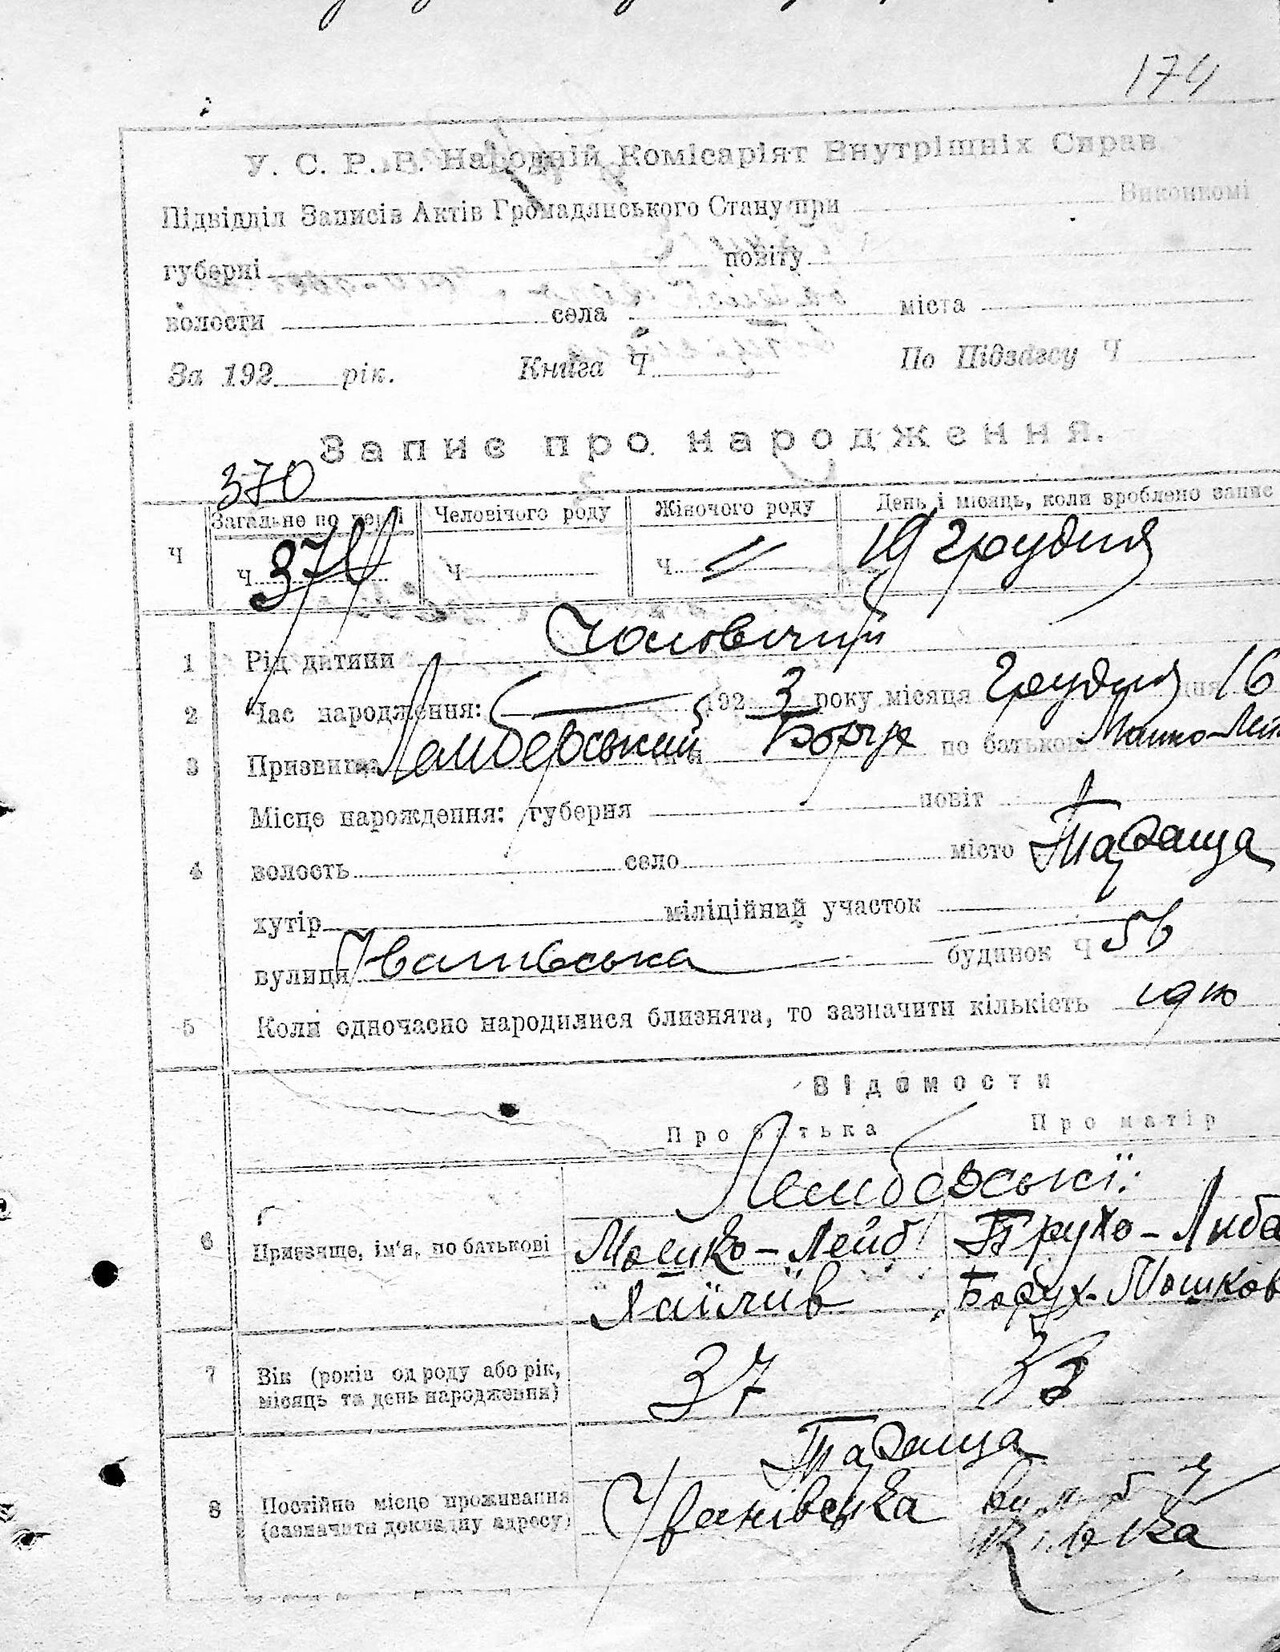 174
У. С. Р. Р. Народній Комісаріят Внутрішніх Справ.
Підвідділ Записів Актів Громадянського Стану при Виконкомі
губерні повіту
волости села міста
За 192 рік. Книга Ч По Підзагсу Ч
Запис про народження.
370
Загальне по черзі Человічого роду Жіночого роду День і місяць, коли зроблено запис
Ч Ч Ч Ч 19 Грудня
1 Рід дитини Чоловічий
2 Час народження: 192 3 року місяця Грудня дня 16
3 Призвище Лемберський Борух по батькові Мошко-Лей
Місце нарождення: губерня повіт
4 волость село місто Тараща
хутір міліційний участок
вулиця Іванівська будинок Ч
5 Коли одночасно народилися близнята, то зазначити кількість одно
Відомости
Про батька Про матір
Лемберські:
6 Призвище, ім'я, по батькові Мошко-Лейб Брухо-Либа
Борух-Мошков
7 Вік (років од роду або рік, 37 33
місяць та день народження)
Тараща
8 Постійне місце проживання Іванівська
(зазначити докладну адресу)